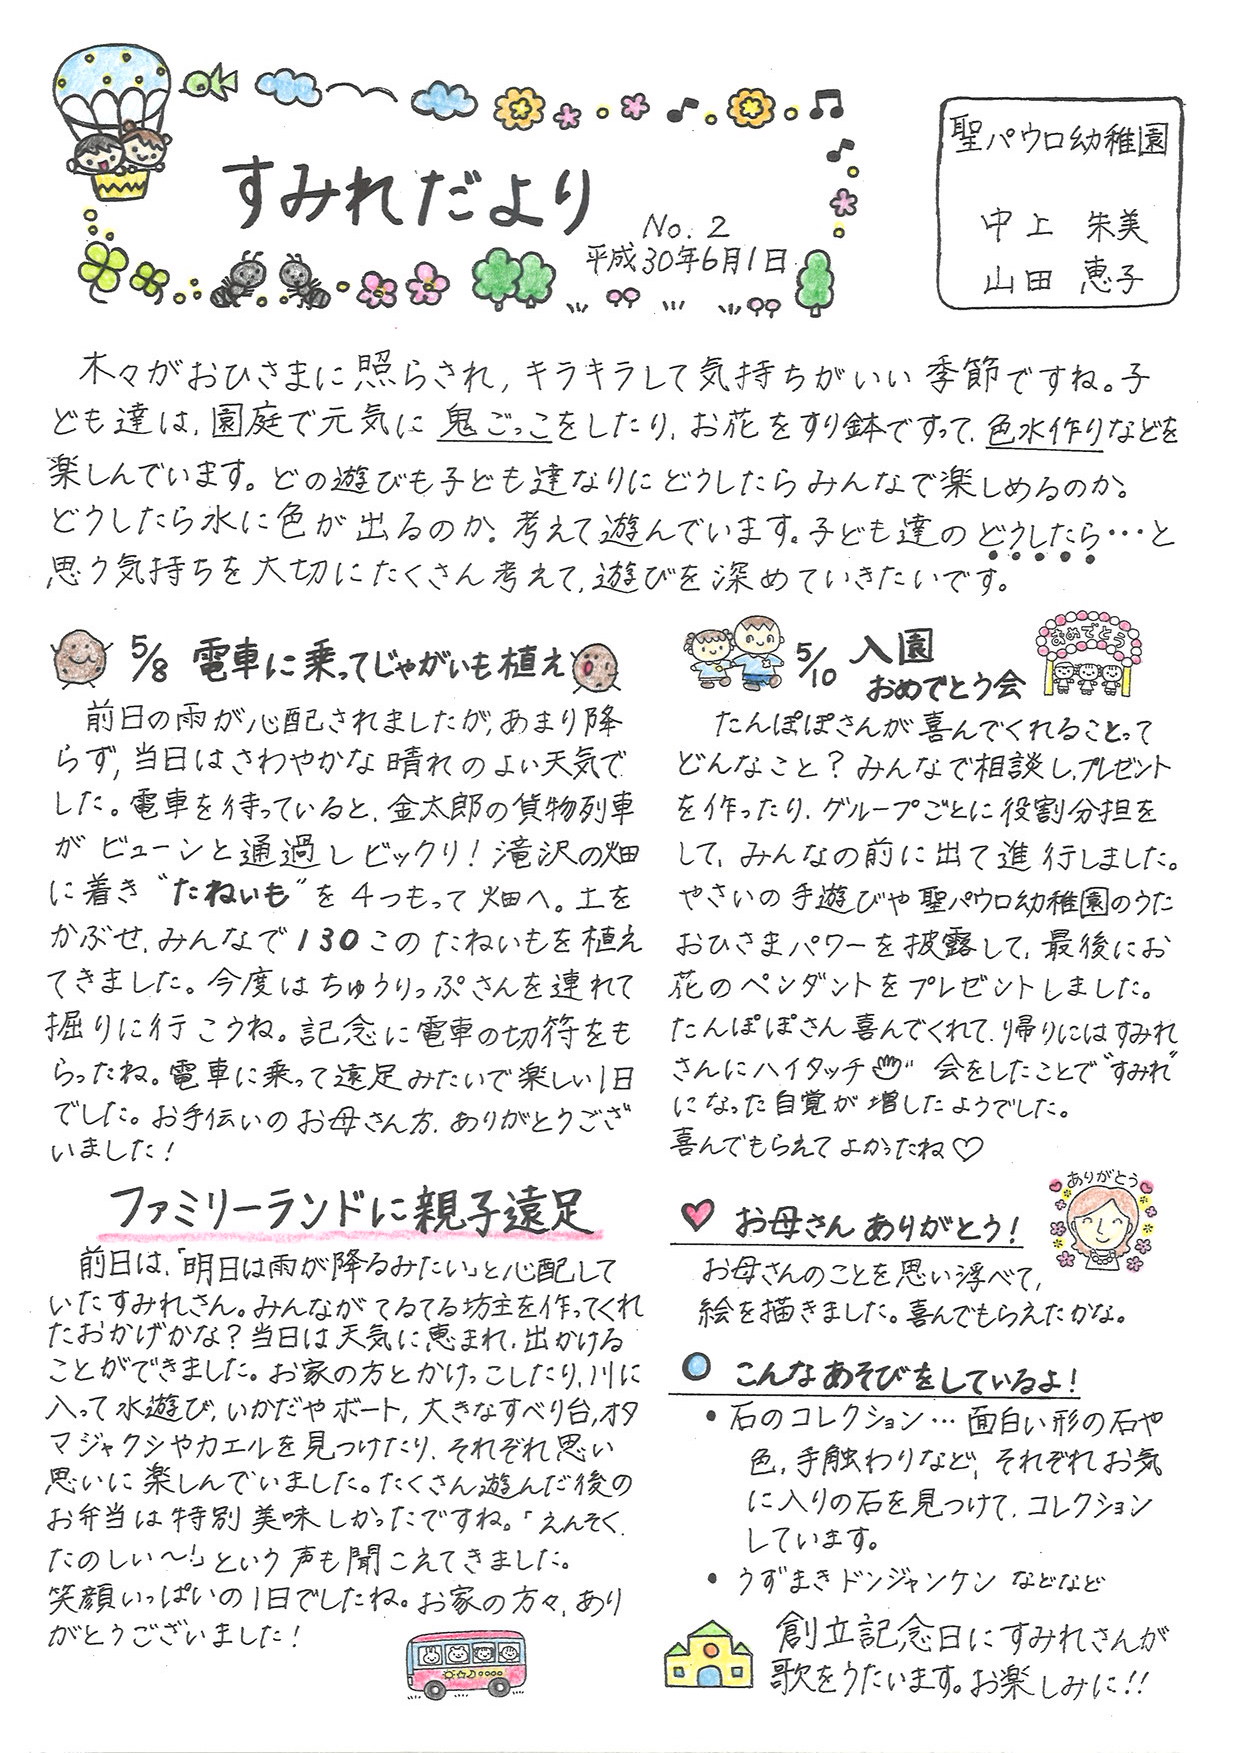 すみれだより
No. 2
平成30年6月1日
聖パウロ幼稚園
中上 朱美
山田 恵子
木々がおひさまに照らされ,キラキラして気持ちがいい季節ですね。子
ども達は,園庭で元気に鬼ごっこをしたり,お花をすり鉢ですって,色水作りなどを
楽しんでいます。どの遊びも子ども達なりにどうしたらみんなで楽しめるのか。
どうしたら水に色が出るのか。考えて遊んでいます。子ども達のどうしたら…と
思う気持ちを大切にたくさん考えて,遊びを深めていきたいです。
5/8 電車に乗ってじゃがいも植え
前日の雨が心配されましたが,あまり降
らず,当日はさわやかな晴れのよい天気で
した。電車を待っていると,金太郎の貨物列車
がビューンと通過しビックリ!滝沢の畑
に着き"たねいも"を4つもって畑へ。土を
かぶせ,みんなで130このたねいもを植え
てきました。今度はちゅうりっぷさんを連れて
掘りに行こうね。記念に電車の切符をも
らったね。電車に乗って遠足みたいで楽しい1日
でした。お手伝いのお母さん方,ありがとうござ
いました!
ファミリーランドに親子遠足
前日は,「明日は雨が降るみたい」と心配して
いたすみれさん。みんながてるてる坊主を作ってくれ
たおかげかな?当日は天気に恵まれ,出かける
ことができました。お家の方とかけっこしたり,川に
入って水遊び,いかだやボート,大きなすべり台,オタ
マジャクシやカエルを見つけたり,それぞれ思い
思いに楽しんでいました。たくさん遊んだ後の
お弁当は特別美味しかったですね。「えんそく,
たのしい〜!」という声も聞こえてきました。
笑顔いっぱいの1日でしたね。お家の方々,あり
がとうございました!
5/10 入園
おめでとう会
おめでとう
たんぽぽさんが喜んでくれることって
どんなこと?みんなで相談し,プレゼント
を作ったり,グループごとに役割分担を
して,みんなの前に出て進行しました。
やさいの手遊びや聖パウロ幼稚園のうた
おひさまパワーを披露して,最後にお
花のペンダントをプレゼントしました。
たんぽぽさん喜んでくれて,帰りにはすみれ
さんにハイタッチ 会をしたことで"すみれ"
になった自覚が増したようでした。
喜んでもらえてよかったね♡
ありがとう
お母さんありがとう!
お母さんのことを思い浮べて,
絵を描きました。喜んでもらえたかな。
こんなあそびをしているよ!
・石のコレクション…面白い形の石や
色,手触わりなど,それぞれお気
に入りの石を見つけて,コレクション
しています。
・うずまきドンジャンケン などなど
創立記念日にすみれさんが
歌をうたいます。お楽しみに!!